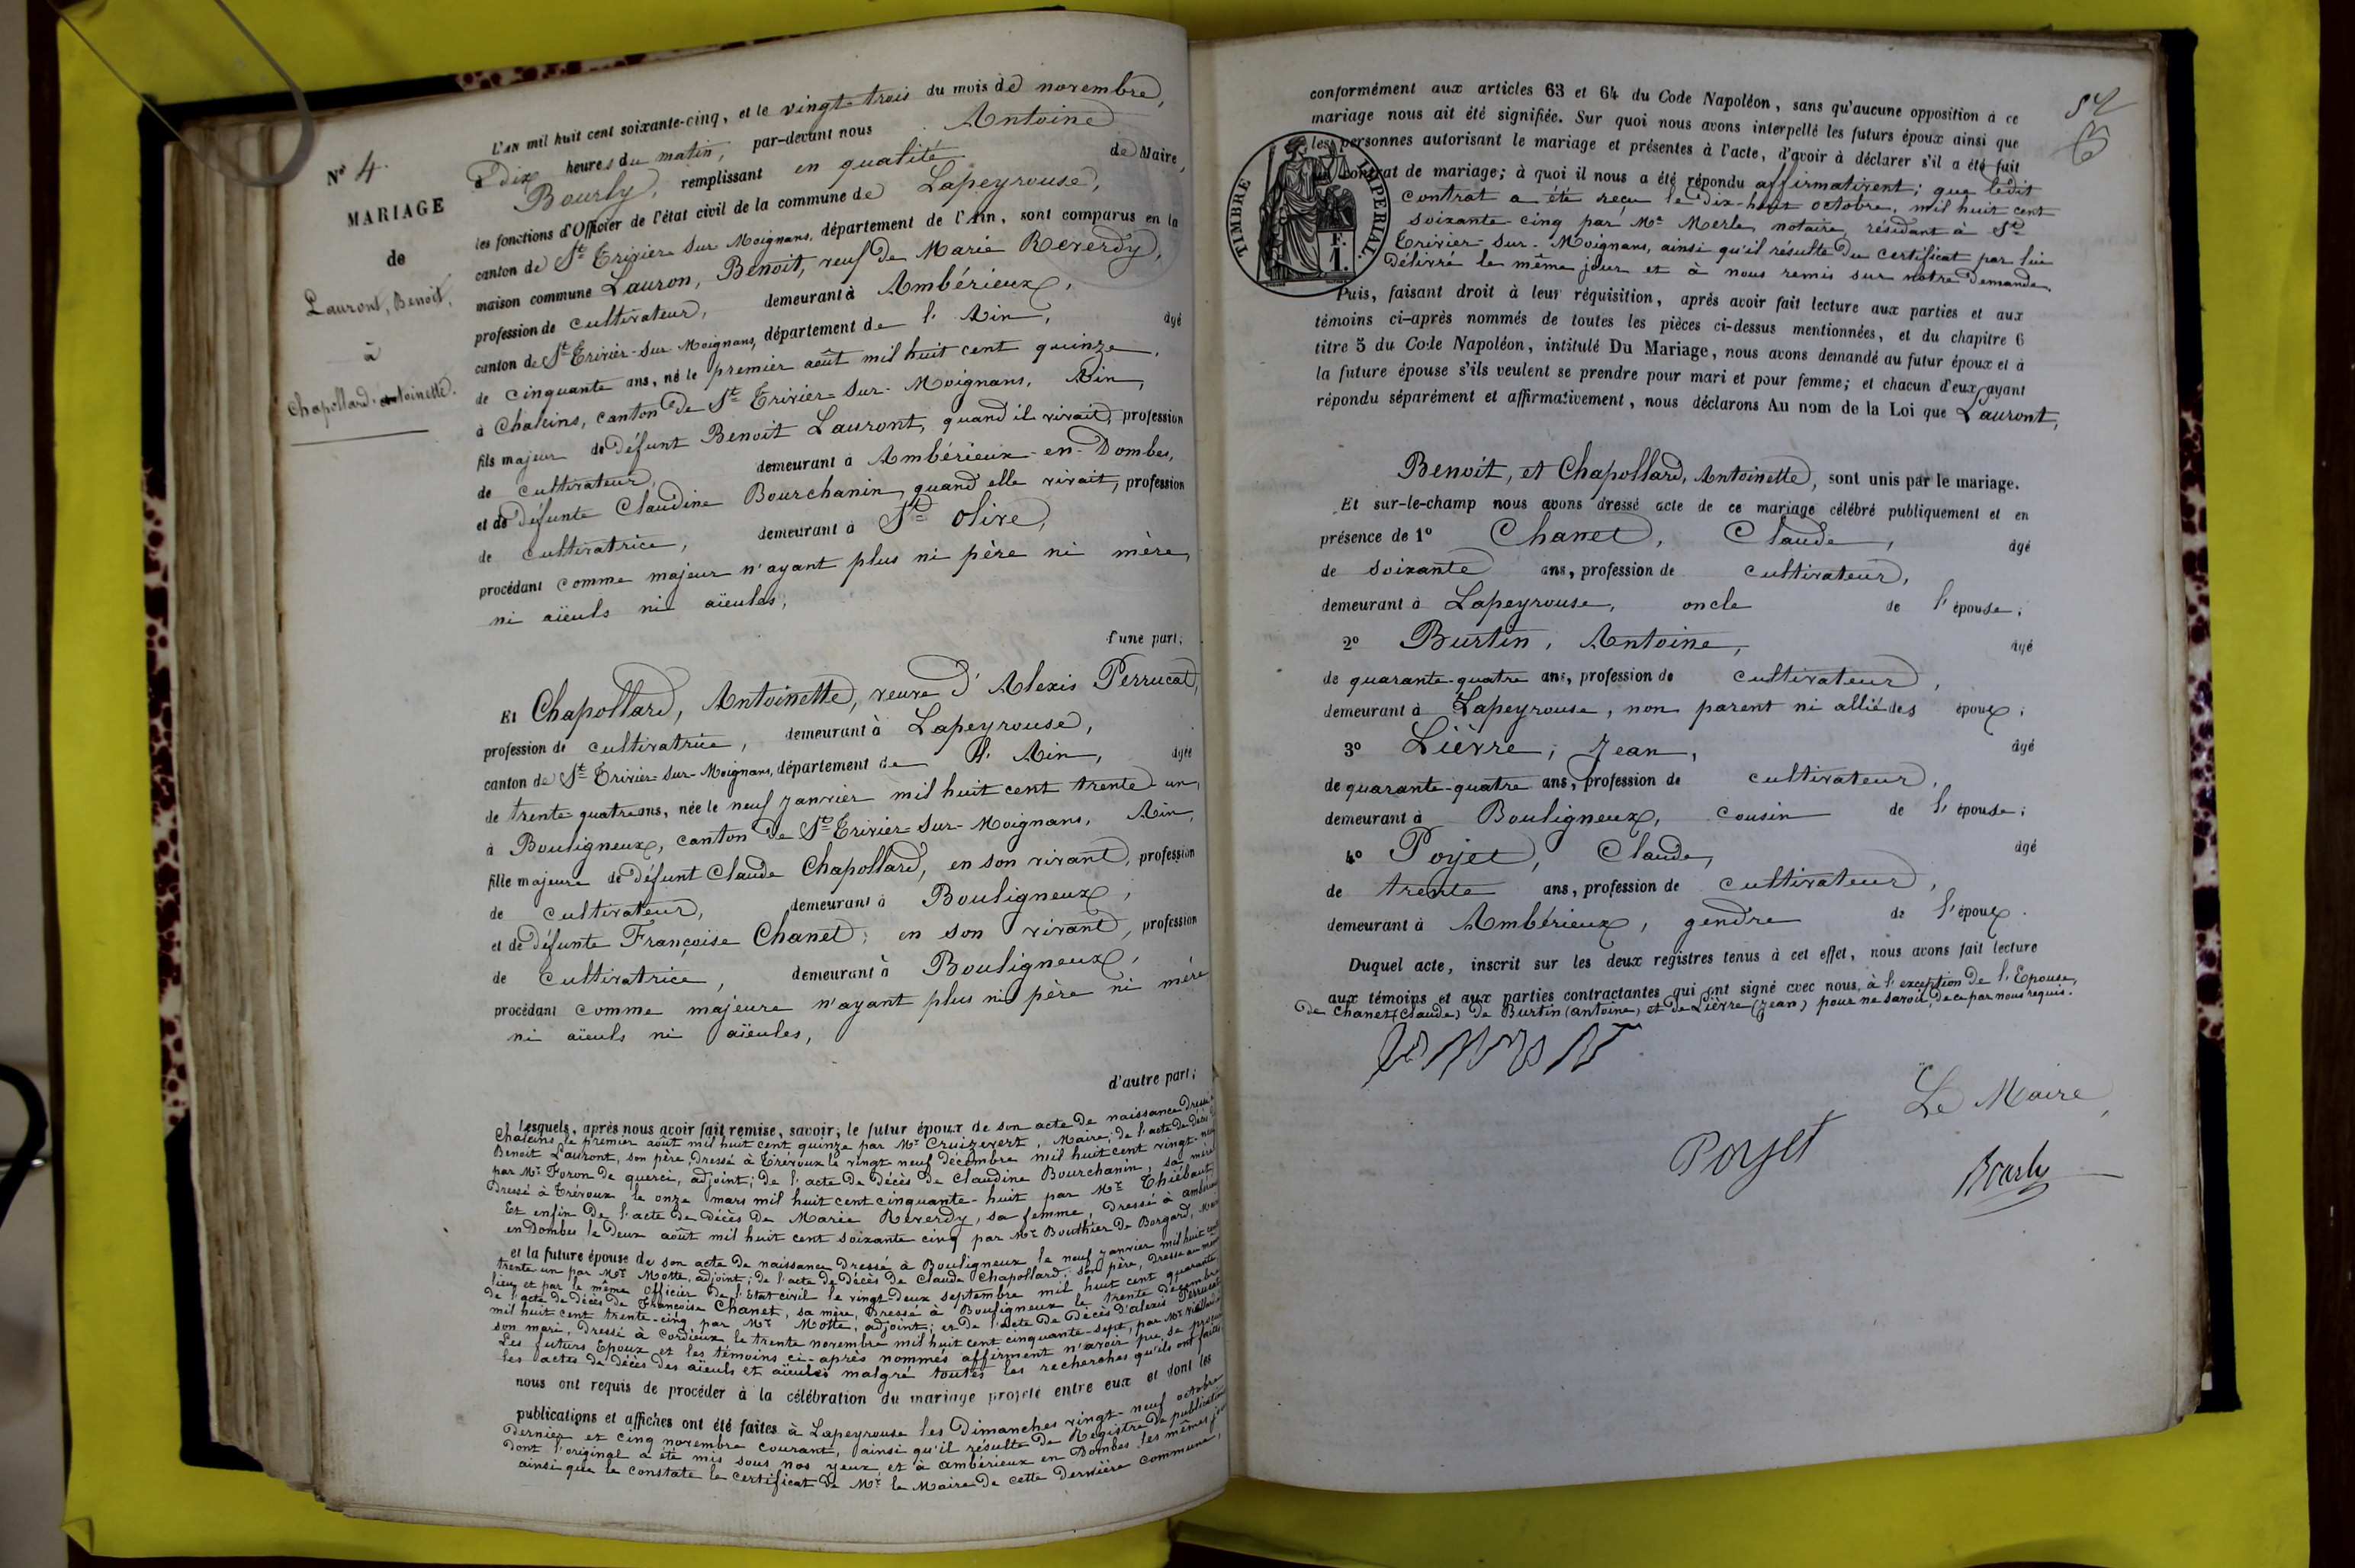 N° 4.
MARIAGE
de
Lauront, Benoit,
à
Chapollard Antoinette.
L'AN mil huit cent soixante-cinq, et le vingt-trois du mois de novembre,
à Dix heures du matin, par-devant nous Antoine
Bourly, remplissant en qualité de Maire,
les fonctions d'Officier de l'état civil de la commune de Lapeyrouse,
canton de St Trivier sur Moignans, département de l'Ain, sont comparus en la
maison commune Lauron, Benoit, veuf de Marie Reverdy,
profession de cultivateur, demeurant à Ambérieux,
canton de St Trivier-sur Moignans, département de l'Ain, âgé
de cinquante ans, né le premier août mil huit cent quinze,
à Chaleins, canton de St Trivier-sur-Moignans, Ain,
fils majeur de Défunt Benoit Lauront, quand il vivait, profession
de cultivateur, demeurant à Ambérieux-en-Dombes,
et de Défunte Claudine Bourchanin, quand elle vivait, profession
de cultivatrice, demeurant à Ste Olive,
procédant comme majeur n'ayant plus ni père ni mère,
ni aïeuls ni aïeules,
d'une part;
Et Chapollard, Antoinette, veuve d'Alexis Perrucat,
profession de cultivatrice, demeurant à Lapeyrouse,
canton de St Trivier-sur-Moignans, département de l'Ain, âgée
de trente-quatre ans, née le neuf janvier mil huit cent trente-un,
à Bouligneux, canton de St Trivier-sur-Moignans, Ain,
fille majeure de Défunt Claude Chapollard, en son vivant, profession
de cultivateur, demeurant à Bouligneux,
et de Défunte Françoise Chanel, en son vivant, profession
de cultivatrice, demeurant à Bouligneux,
procédant comme majeure n'ayant plus ni père ni mère
ni aïeuls ni aïeules,
d'autre part;
Lesquels, après nous avoir fait remise, savoir; le futur époux de son acte de naissance dressé à
Chaleins le premier août mil huit cent quinze par Mr Cruizevert, Maire; de l'acte de décès de
Benoit Lauront, son père, dressé à Trévoux le vingt-neuf décembre mil huit cent vingt-neuf
par Mr Foron de querci, adjoint; de l'acte de décès de Claudine Bourchanin, sa mère
dressé à Trévoux le onze mars mil huit cent cinquante-huit par Mr Thiébaut,
Et enfin de l'acte de décès de Marie Reverdy, sa femme, dressé à ambérieux
en Dombes le deux août mil huit cent soixante cinq par Mr Bouthier de Borgard, Maire
et la future épouse de son acte de naissance dressé à Bouligneux le neuf janvier mil huit cent
trente-un par Mr Motte, adjoint; de l'acte de décès de Claude Chapollard, son père, dressé au même
lieu et par le même officier de l'Etat civil le vingt-deux septembre mil huit cent quarante
de l'acte de décès de Françoise Chanel, sa mère, dressé à Bouligneux le trente décembre
mil huit cent trente-cinq par Mr Motte, adjoint; et de l'acte de décès d'alexis Perrucat
son mari, dressé à Cordieux le trente novembre mil huit cent cinquante-sept, par Mr
Les futurs Epoux et les témoins ci-après nommés affirment n'avoir pu se procurer
les actes de décès des aïeuls et aïeules malgré toutes les recherches qu'ils ont faites.
nous ont requis de procéder à la célébration du mariage projeté entre eux et dont les
publications et affiches ont été faites à Lapeyrouse les Dimanches vingt-neuf octobre
dernier et cinq novembre courant, ainsi qu'il résulte de Registre de publication
dont l'original a été mis sous nos yeux et à ambérieux en Dombes les mêmes jours
ainsi que le constate le certificat de Mr le Maire de cette dernière commune,
TIMBRE IMPERIAL.
F.
1.
conformément aux articles 63 et 64 du Code Napoléon, sans qu'aucune opposition à ce
mariage nous ait été signifiée. Sur quoi nous avons interpellé les futurs époux ainsi que
les personnes autorisant le mariage et présentes à l'acte, d'avoir à déclarer s'il a été fait
contrat de mariage; à quoi il nous a été répondu affirmativent; que ledit
contrat a été reçu le dix-huit octobre, mil huit cent
soixante-cinq par Me Merle notaire, résidant à St
Trivier-sur-Moignans, ainsi qu'il résulte du certificat par lui
délivré le même jour et à nous remis sur notre demande,
Puis, faisant droit à leur réquisition, après avoir fait lecture aux parties et aux
témoins ci-après nommés de toutes les pièces ci-dessus mentionnées, et du chapitre 6
titre 5 du Code Napoléon, intitulé Du Mariage, nous avons demandé au futur époux et à
la future épouse s'ils veulent se prendre pour mari et pour femme; et chacun d'eux ayant
répondu séparément et affirmativement, nous déclarons Au nom de la Loi que Lauront,
Benoit, et Chapollard, Antoinette, sont unis par le mariage.
Et sur-le-champ nous avons dressé acte de ce mariage célébré publiquement et en
présence de 1° Chanel, Claude, âgé
de soixante ans, profession de cultivateur,
demeurant à Lapeyrouse, oncle de l'épouse;
2° Burtin, Antoine, âgé
de quarante-quatre ans, profession de cultivateur,
demeurant à Lapeyrouse, non parent ni allié des époux;
3° Lièvre, Jean, âgé
de quarante-quatre ans, profession de cultivateur,
demeurant à Bouligneux, cousin de l'épouse;
4° Poyet, Claude, âgé
de trente ans, profession de cultivateur,
demeurant à Ambérieux, gendre de l'époux.
Duquel acte, inscrit sur les deux registres tenus à cet effet, nous avons fait lecture
aux témoins et aux parties contractantes qui ont signé avec nous, à l'exception de l'Epouse,
de Chanel (Claude) de Burtin (antoine) et de Lièvre (jean) pour ne savoir, de ce par nous requis.
Le Maire,
Poyet
Bourly